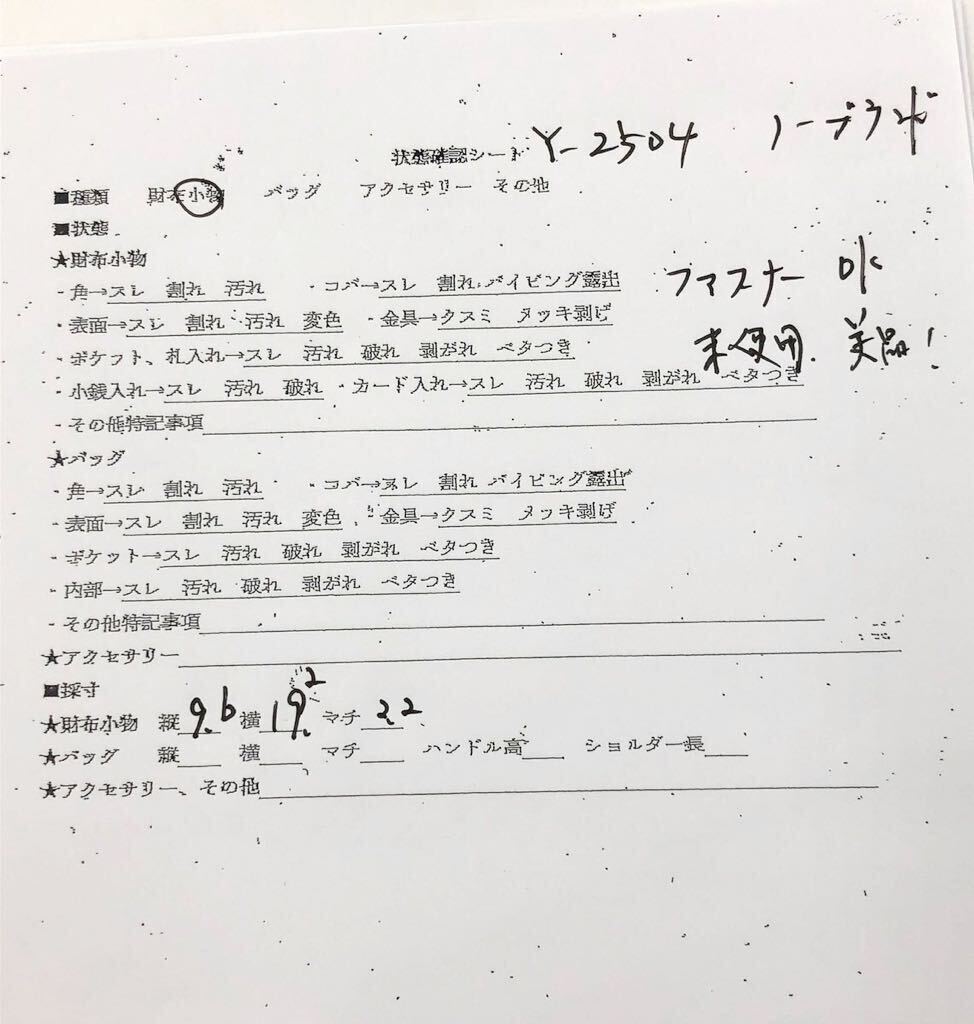 状態確認シート Y-2504 ノーブランド
■種類 財布小物 バッグ アクセサリー その他
■状態
★財布小物
・角→スレ 割れ 汚れ ・コバ→スレ 割れ パイピング露出 ファスナー OK
・表面→スレ 割れ 汚れ 変色 ・金具→クスミ メッキ剥げ
・ポケット、札入れ→スレ 汚れ 破れ 剥がれ ベタつき 未使用、美品!
・小銭入れ→スレ 汚れ 破れ ・カード入れ→スレ 汚れ 破れ 剥がれ ベタつき
・その他特記事項
★バッグ
・角→スレ 割れ 汚れ ・コバ→スレ 割れ パイピング露出
・表面→スレ 割れ 汚れ 変色 ・金具→クスミ メッキ剥げ
・ポケット→スレ 汚れ 破れ 剥がれ ベタつき
・内部→スレ 汚れ 破れ 剥がれ ベタつき
・その他特記事項
★アクセサリー
■採寸
★財布小物 縦9.6 横19.2 マチ2.2
★バッグ 縦 横 マチ ハンドル高 ショルダー長
★アクセサリー、その他